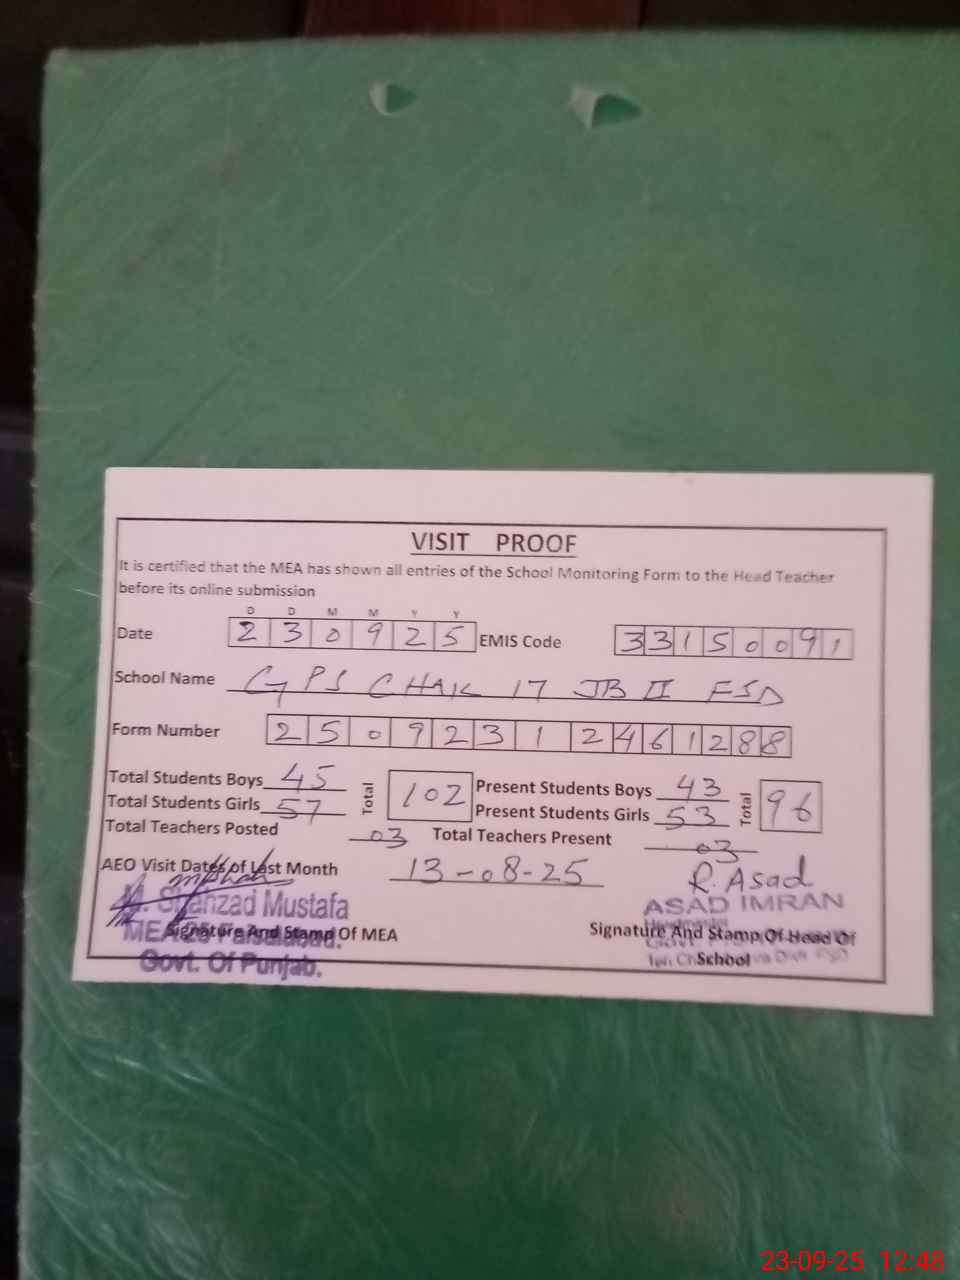 VISIT PROOF
It is certified that the MEA has shown all entries of the School Monitoring Form to the Head Teacher
before its online submission
D D M M Y Y
Date 2 3 0 9 2 5 EMIS Code 3 3 1 5 0 0 9 1
School Name GPS CHAK 17 JB II FSD
Form Number 2 5 0 9 2 3 1 2 4 6 1 2 8 8
Total Students Boys 45 Total 102 Present Students Boys 43 Total 96
Total Students Girls 57 Present Students Girls 53
Total Teachers Posted 03 Total Teachers Present 03
AEO Visit Dates of Last Month 13-08-25 R. Asad
M. Shahzad Mustafa ASAD IMRAN
Signature And Stamp Of MEA Signature And Stamp Of Head Of
MEA 25 Faisalabad. Headmaster
Govt. Of Punjab. School
23-09-25 12:48